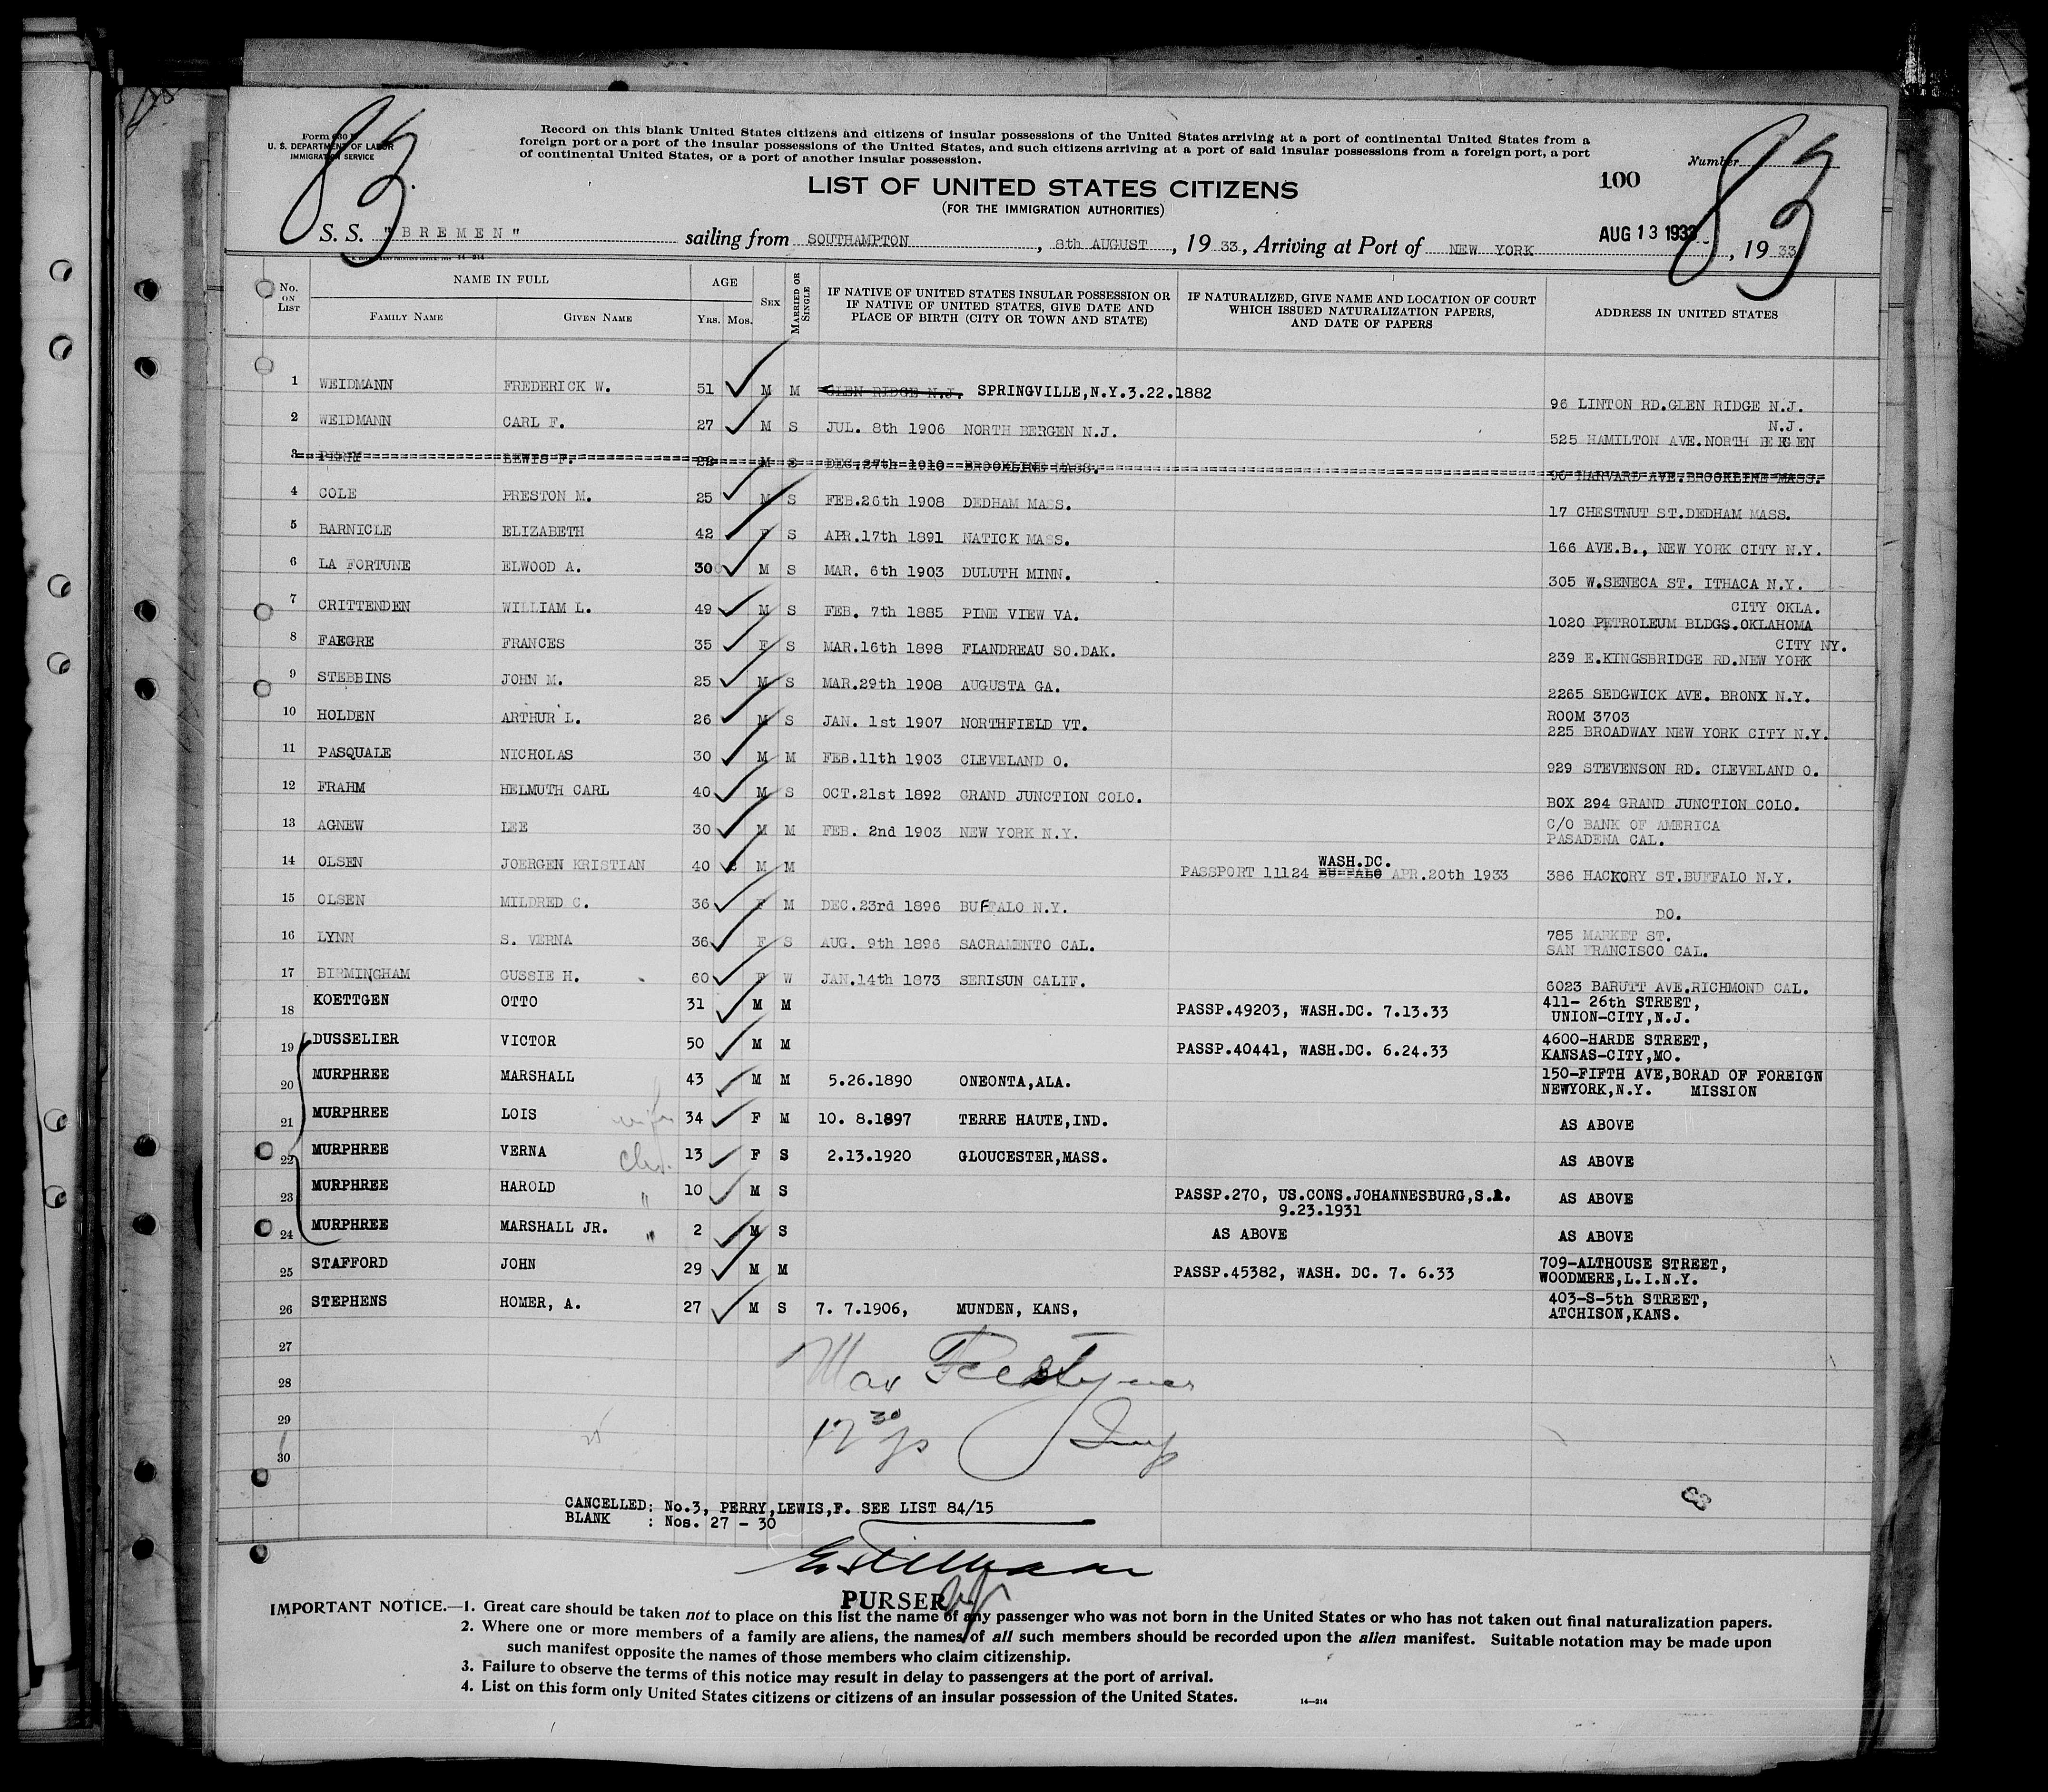 83
Form 630
U. S. DEPARTMENT OF LABOR
IMMIGRATION SERVICE
Record on this blank United States citizens and citizens of insular possessions of the United States arriving at a port of continental United States from a
foreign port or a port of the insular possessions of the United States, and such citizens arriving at a port of said insular possessions from a foreign port, a port
of continental United States, or a port of another insular possession.
Number 83
LIST OF UNITED STATES CITIZENS
100
(FOR THE IMMIGRATION AUTHORITIES)
S. S. "BREMEN" sailing from SOUTHAMPTON, 8th AUGUST, 1933, Arriving at Port of NEW YORK AUG 13 1933, 1933
14-214
No. ON LIST NAME IN FULL AGE SEX MARRIED OR SINGLE IF NATIVE OF UNITED STATES INSULAR POSSESSION OR IF NATIVE OF UNITED STATES, GIVE DATE AND PLACE OF BIRTH (CITY OR TOWN AND STATE) IF NATURALIZED, GIVE NAME AND LOCATION OF COURT WHICH ISSUED NATURALIZATION PAPERS, AND DATE OF PAPERS ADDRESS IN UNITED STATES
FAMILY NAME GIVEN NAME YRS. MOS.
1 WEIDMANN FREDERICK W. 51 M M GLEN RIDGE N.J. SPRINGVILLE,N.Y.3.22.1882 96 LINTON RD.GLEN RIDGE N.J.
2 WEIDMANN CARL F. 27 M S JUL. 8th 1906 NORTH BERGEN N.J. 525 HAMILTON AVE.NORTH BERGEN N.J.
3 PERRY LEWIS F. 22 M S DEC.27th 1910 BROOKLINE MASS. 96 HARVARD AVE.BROOKLINE MASS.
4 COLE PRESTON M. 25 M S FEB.26th 1908 DEDHAM MASS. 17 CHESTNUT ST.DEDHAM MASS.
5 BARNICLE ELIZABETH 42 F S APR.17th 1891 NATICK MASS. 166 AVE.B., NEW YORK CITY N.Y.
6 LA FORTUNE ELWOOD A. 30 M S MAR. 6th 1903 DULUTH MINN. 305 W.SENECA ST. ITHACA N.Y.
7 CRITTENDEN WILLIAM L. 49 M S FEB. 7th 1885 PINE VIEW VA. 1020 PETROLEUM BLDGS.OKLAHOMA CITY OKLA.
8 FAEGRE FRANCES 35 F S MAR.16th 1898 FLANDREAU SO.DAK. 239 E.KINGSBRIDGE RD.NEW YORK CITY NY.
9 STEBBINS JOHN M. 25 M S MAR.29th 1908 AUGUSTA GA. 2265 SEDGWICK AVE. BRONX N.Y.
10 HOLDEN ARTHUR L. 26 M S JAN. 1st 1907 NORTHFIELD VT. ROOM 3703
225 BROADWAY NEW YORK CITY N.Y.
11 PASQUALE NICHOLAS 30 M M FEB.11th 1903 CLEVELAND O. 929 STEVENSON RD. CLEVELAND O.
12 FRAHM HELMUTH CARL 40 M S OCT.21st 1892 GRAND JUNCTION COLO. BOX 294 GRAND JUNCTION COLO.
13 AGNEW LEE 30 M M FEB. 2nd 1903 NEW YORK N.Y. C/O BANK OF AMERICA
PASADENA CAL.
14 OLSEN JOERGEN KRISTIAN 40 M M PASSPORT 11124 BUFFALO WASH.DC. APR.20th 1933 386 HACKORY ST.BUFFALO N.Y.
15 OLSEN MILDRED C. 36 F M DEC.23rd 1896 BUFFALO N.Y. DO.
16 LYNN S. VERNA 36 F S AUG. 9th 1896 SACRAMENTO CAL. 785 MARKET ST.
SAN FRANCISCO CAL.
17 BIRMINGHAM GUSSIE H. 60 F W JAN.14th 1873 SERISUN CALIF. 6023 BARUTT AVE.RICHMOND CAL.
18 KOETTGEN OTTO 31 M M PASSP.49203, WASH.DC. 7.13.33 411- 26th STREET,
UNION-CITY,N.J.
19 DUSSELIER VICTOR 50 M M PASSP.40441, WASH.DC. 6.24.33 4600-HARDE STREET,
KANSAS-CITY,MO.
20 MURPHREE MARSHALL 43 M M 5.26.1890 ONEONTA,ALA. 150-FIFTH AVE,BORAD OF FOREIGN
NEWYORK,N.Y. MISSION
21 MURPHREE LOIS wife 34 F M 10. 8.1897 TERRE HAUTE,IND. AS ABOVE
22 MURPHREE VERNA ch. 13 F S 2.13.1920 GLOUCESTER,MASS. AS ABOVE
23 MURPHREE HAROLD " 10 M S PASSP.270, US.CONS.JOHANNESBURG,S.A. AS ABOVE
9.23.1931
24 MURPHREE MARSHALL JR. " 2 M S AS ABOVE AS ABOVE
25 STAFFORD JOHN 29 M M PASSP.45382, WASH. DC. 7. 6.33 709-ALTHOUSE STREET,
WOODMERE,L.I.N.Y.
26 STEPHENS HOMER, A. 27 M S 7. 7.1906, MUNDEN, KANS, 403-S-5th STREET,
ATCHISON,KANS.
27
28
29
30
Max
Insp
83
CANCELLED: No.3, PERRY,LEWIS,F. SEE LIST 84/15
BLANK : Nos. 27 - 30
PURSER
IMPORTANT NOTICE.—1. Great care should be taken not to place on this list the name of any passenger who was not born in the United States or who has not taken out final naturalization papers.
2. Where one or more members of a family are aliens, the names of all such members should be recorded upon the alien manifest. Suitable notation may be made upon
such manifest opposite the names of those members who claim citizenship.
3. Failure to observe the terms of this notice may result in delay to passengers at the port of arrival.
4. List on this form only United States citizens or citizens of an insular possession of the United States.
14—214